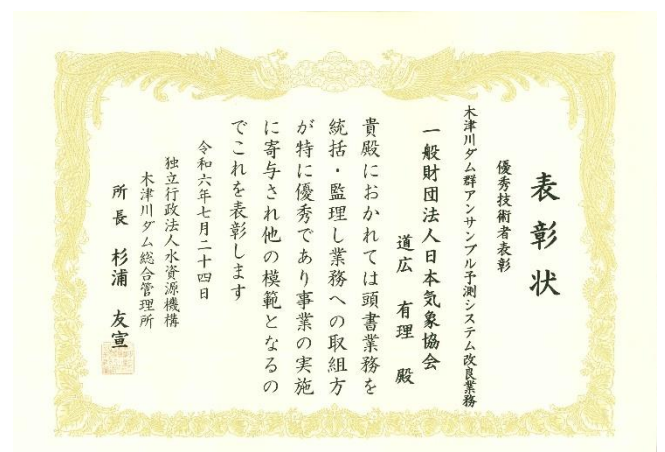 表彰状
優秀技術者表彰
木津川ダム群アンサンブル予測システム改良業務
一般財団法人日本気象協会
道広 有理 殿
貴殿におかれては頭書業務を
統括・監理し業務への取組方
が特に優秀であり事業の実施
に寄与され他の模範となるの
でこれを表彰します
令和六年七月二十四日
独立行政法人水資源機構
木津川ダム総合管理所
所長 杉浦 友宣